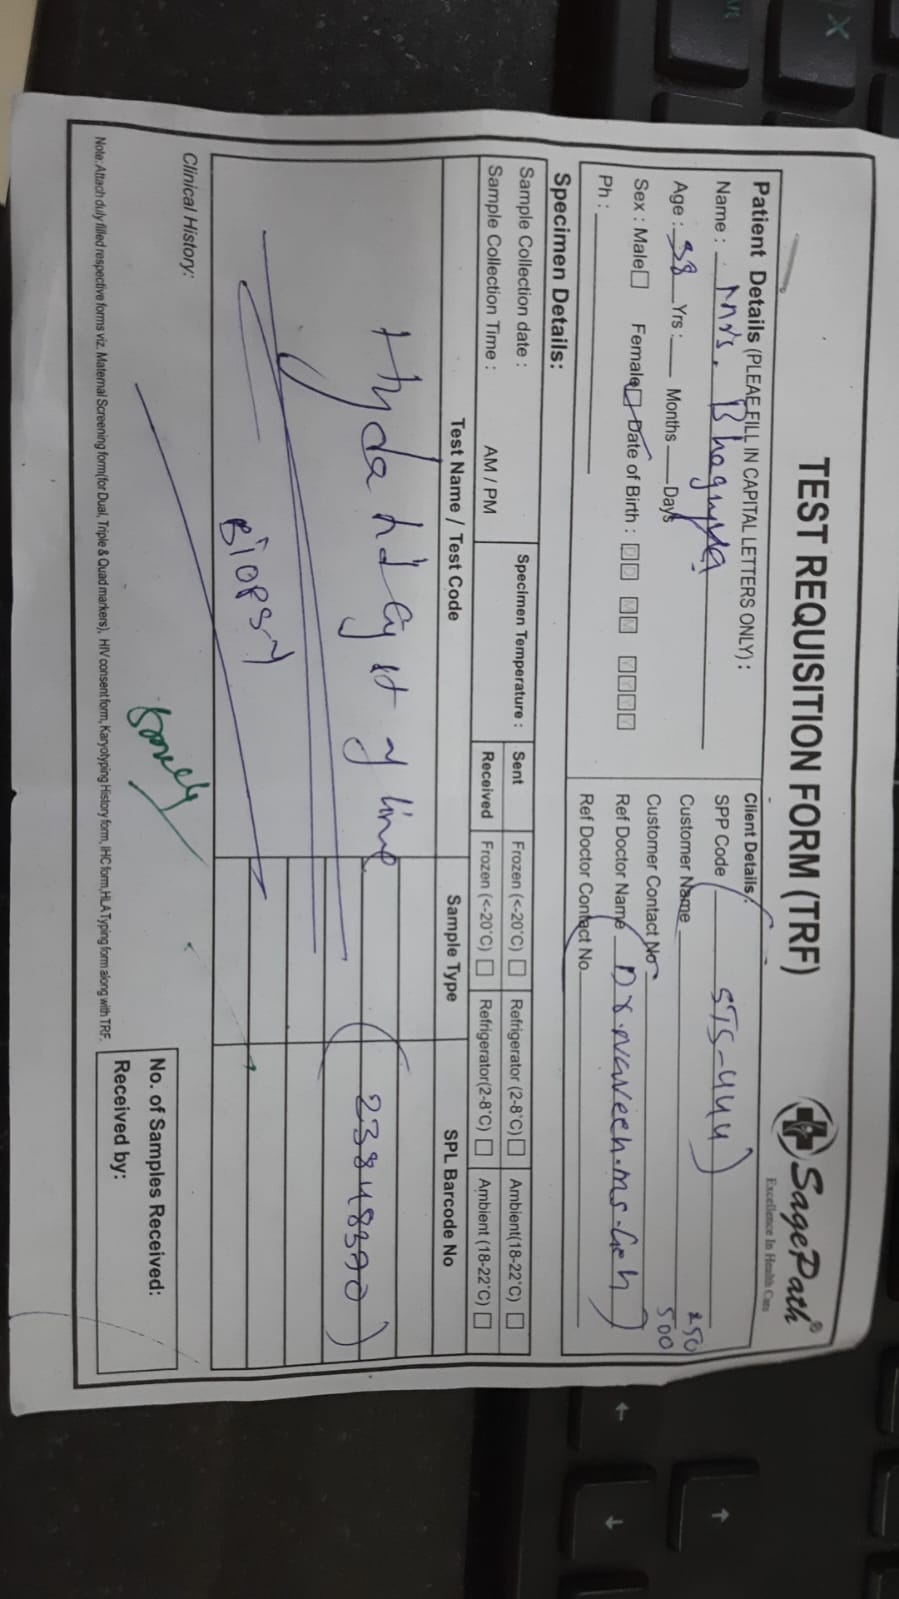 TEST REQUISITION FORM (TRF)
SagePath®
Excellence In Health Care
Patient Details (PLEAE FILL IN CAPITAL LETTERS ONLY) :
Name : Mrs.
Age : 38 Yrs : Months Days
Sex : Male Female Date of Birth : DD MM YYYY
Ph :
Client Details :
SPP Code STS-444
Customer Name
250
Customer Contact No
500
Ref Doctor Name Dr.
Ref Doctor Contact No.
Specimen Details:
Sample Collection date :
Sample Collection Time : AM / PM
Specimen Temperature :
Sent Frozen (<-20°C) Refrigerator (2-8°C) Ambient(18-22°C)
Received Frozen (<-20°C) Refrigerator(2-8°C) Ambient (18-22°C)
Test Name / Test Code Sample Type SPL Barcode No
Hydatid Cyst
23848390
BIOPSY
Clinical History:
No. of Samples Received:
Received by:
Note: Attach duly filled respective forms viz. Maternal Screening form(for Dual, Triple & Quad markers), HIV consent form, Karyotyping History form, IHC form, HLA Typing form along with TRF.
X